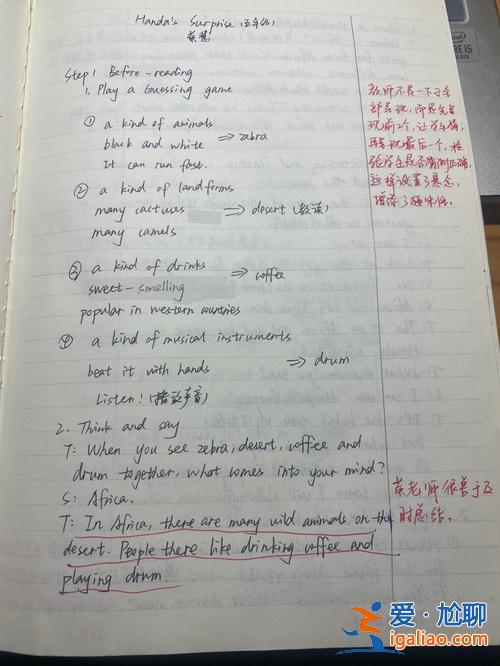 Handa's Surprise (五年级)
蔡慧
Step 1 Before-reading
1. Play a Guessing game
① a kind of animals
black and white ⇒ zebra
It can run fast.
② a kind of landforms
many cactuses ⇒ desert (教读)
many camels
③ a kind of drinks
sweet-smelling ⇒ coffee
popular in western countries
④ a kind of musical instruments
beat it with hands ⇒ drum
Listen! (播放声音)
2. Think and say
T: When you see zebra, desert, coffee and
drum together, what comes into your mind?
S: Africa.
T: In Africa, there are many wild animals on the
desert. People there like drinking coffee and
playing drum.
教师不是一下子全
部呈现，而是先呈
现前2个，让学生猜，
再呈现最后一个，检
验学生是否猜测正确，
这样设置了悬念，
增添了趣味性。
蔡老师很善于及
时总结。
intel
CORE i5
爱·尬聊
igaliao.com